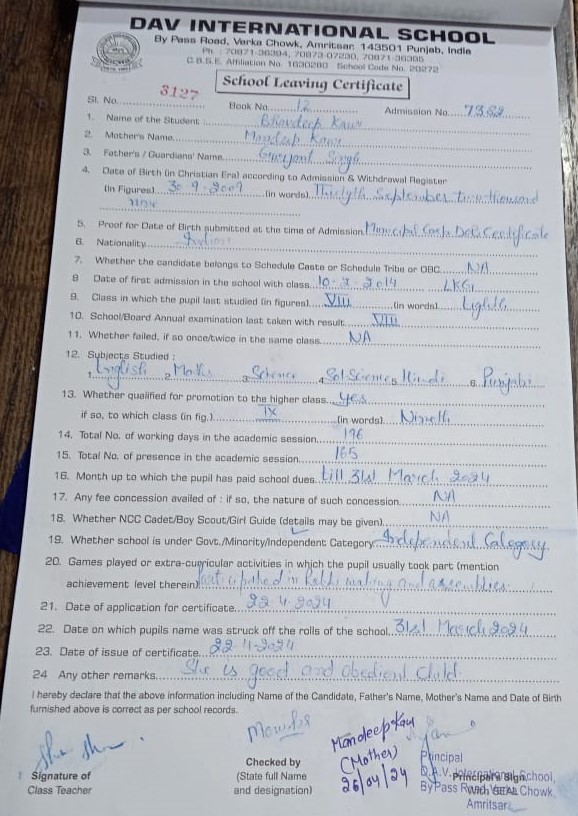 DAV INTERNATIONAL SCHOOL
By Pass Road, Verka Chowk, Amritsar 143501 Punjab, India
Ph. : 70871-36304, 70873-07230, 70871-36305
C.B.S.E. Affiliation No. 1630280 School Code No. 20272
School Leaving Certificate
Sl. No. 3127 Book No. 12 Admission No. 7382
1. Name of the Student : Bhavdeep Kaur
2. Mother's Name Mandeep Kaur
3. Father's / Guardians' Name Gurjant Singh
4. Date of Birth (in Christian Era) according to Admission & Withdrawal Register
(in Figures) 30-9-2009 (in words) Thirtyth September two thousand
nine
5. Proof for Date of Birth submitted at the time of Admission Municipal DOB Certificate
6. Nationality Indian
7. Whether the candidate belongs to Schedule Caste or Schedule Tribe or OBC NA
8 Date of first admission in the school with class 10-3-2014 LKG
9. Class in which the pupil last studied (in figures) VIII (in words) Eighth
10. School/Board Annual examination last taken with result VIII
11. Whether failed, if so once/twice in the same class NA
12. Subjects Studied :
1. English 2. Maths 3. Science 4. Sst 5. Hindi 6. Punjabi
13. Whether qualified for promotion to the higher class yes
if so, to which class (in fig.) IX (in words) Nineth
14. Total No. of working days in the academic session 196
15. Total No. of presence in the academic session 165
16. Month up to which the pupil has paid school dues till 31st March 2024
17. Any fee concession availed of : if so, the nature of such concession NA
18. Whether NCC Cadet/Boy Scout/Girl Guide (details may be given) NA
19. Whether school is under Govt./Minority/Independent Category Independent Category
20. Games played or extra-curricular activities in which the pupil usually took part (mention
achievement level therein) participated in making and assemblies
21. Date of application for certificate 22-4-2024
22. Date on which pupils name was struck off the rolls of the school 31st March 2024
23. Date of issue of certificate 22-4-2024
24 Any other remarks She is good and obedient child
I hereby declare that the above information including Name of the Candidate, Father's Name, Mother's Name and Date of Birth
furnished above is correct as per school records.
Mandeep Kaur
(Mother)
26/04/24
Signature of
Class Teacher
Checked by
(State full Name
and designation)
Principal
D.A.V. International School,
By Pass Road, Verka Chowk,
Amritsar
Principal's Sign.
With SEAL